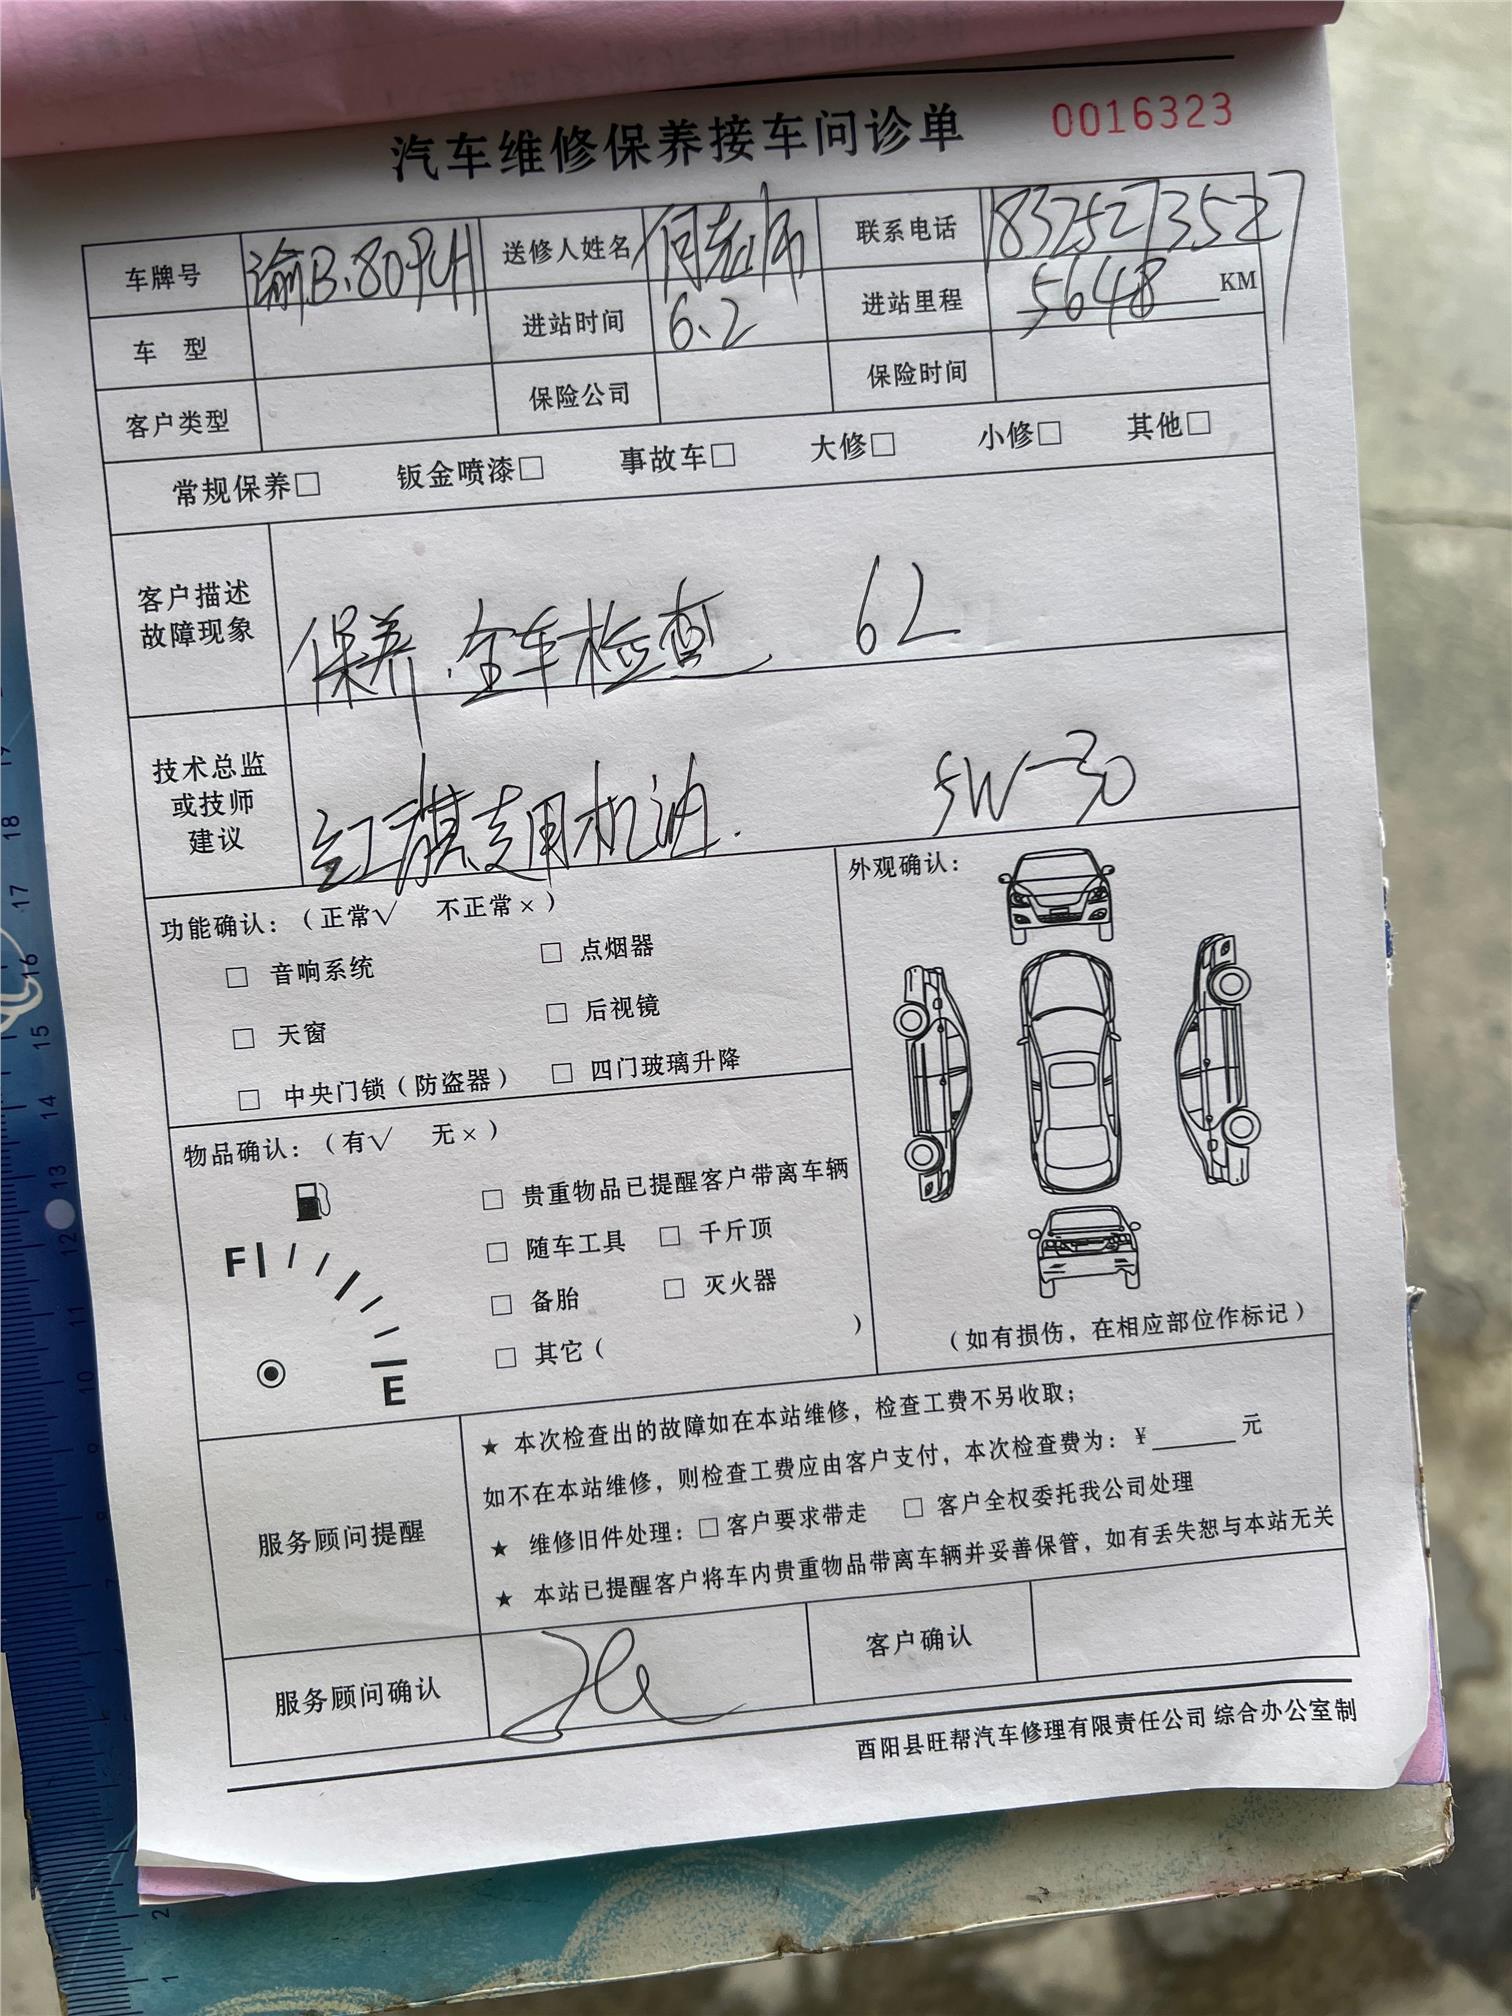 汽车维修保养接车问诊单 0016323
车牌号 渝B·809CH 送修人姓名 何老师 联系电话 18325273527
车 型 进站时间 6.2 进站里程 5648 KM
客户类型 保险公司 保险时间
常规保养□ 钣金喷漆□ 事故车□ 大修□ 小修□ 其他□
客户描述
故障现象
保养.全车检查. 6L
技术总监
或技师
建议
红旗专用机油. 5W-30
功能确认：（正常√ 不正常×） 外观确认：
□ 音响系统 □ 点烟器
□ 天窗 □ 后视镜
□ 中央门锁（防盗器） □ 四门玻璃升降
物品确认：（有√ 无×）
□ 贵重物品已提醒客户带离车辆
F
□ 随车工具 □ 千斤顶
□ 备胎 □ 灭火器
□ 其它（ ）
E
（如有损伤，在相应部位作标记）
服务顾问提醒
★ 本次检查出的故障如在本站维修，检查工费不另收取；
如不在本站维修，则检查工费应由客户支付，本次检查费为：¥______元
★ 维修旧件处理：□客户要求带走 □ 客户全权委托我公司处理
★ 本站已提醒客户将车内贵重物品带离车辆并妥善保管，如有丢失恕与本站无关
服务顾问确认 客户确认
酉阳县旺帮汽车修理有限责任公司 综合办公室制